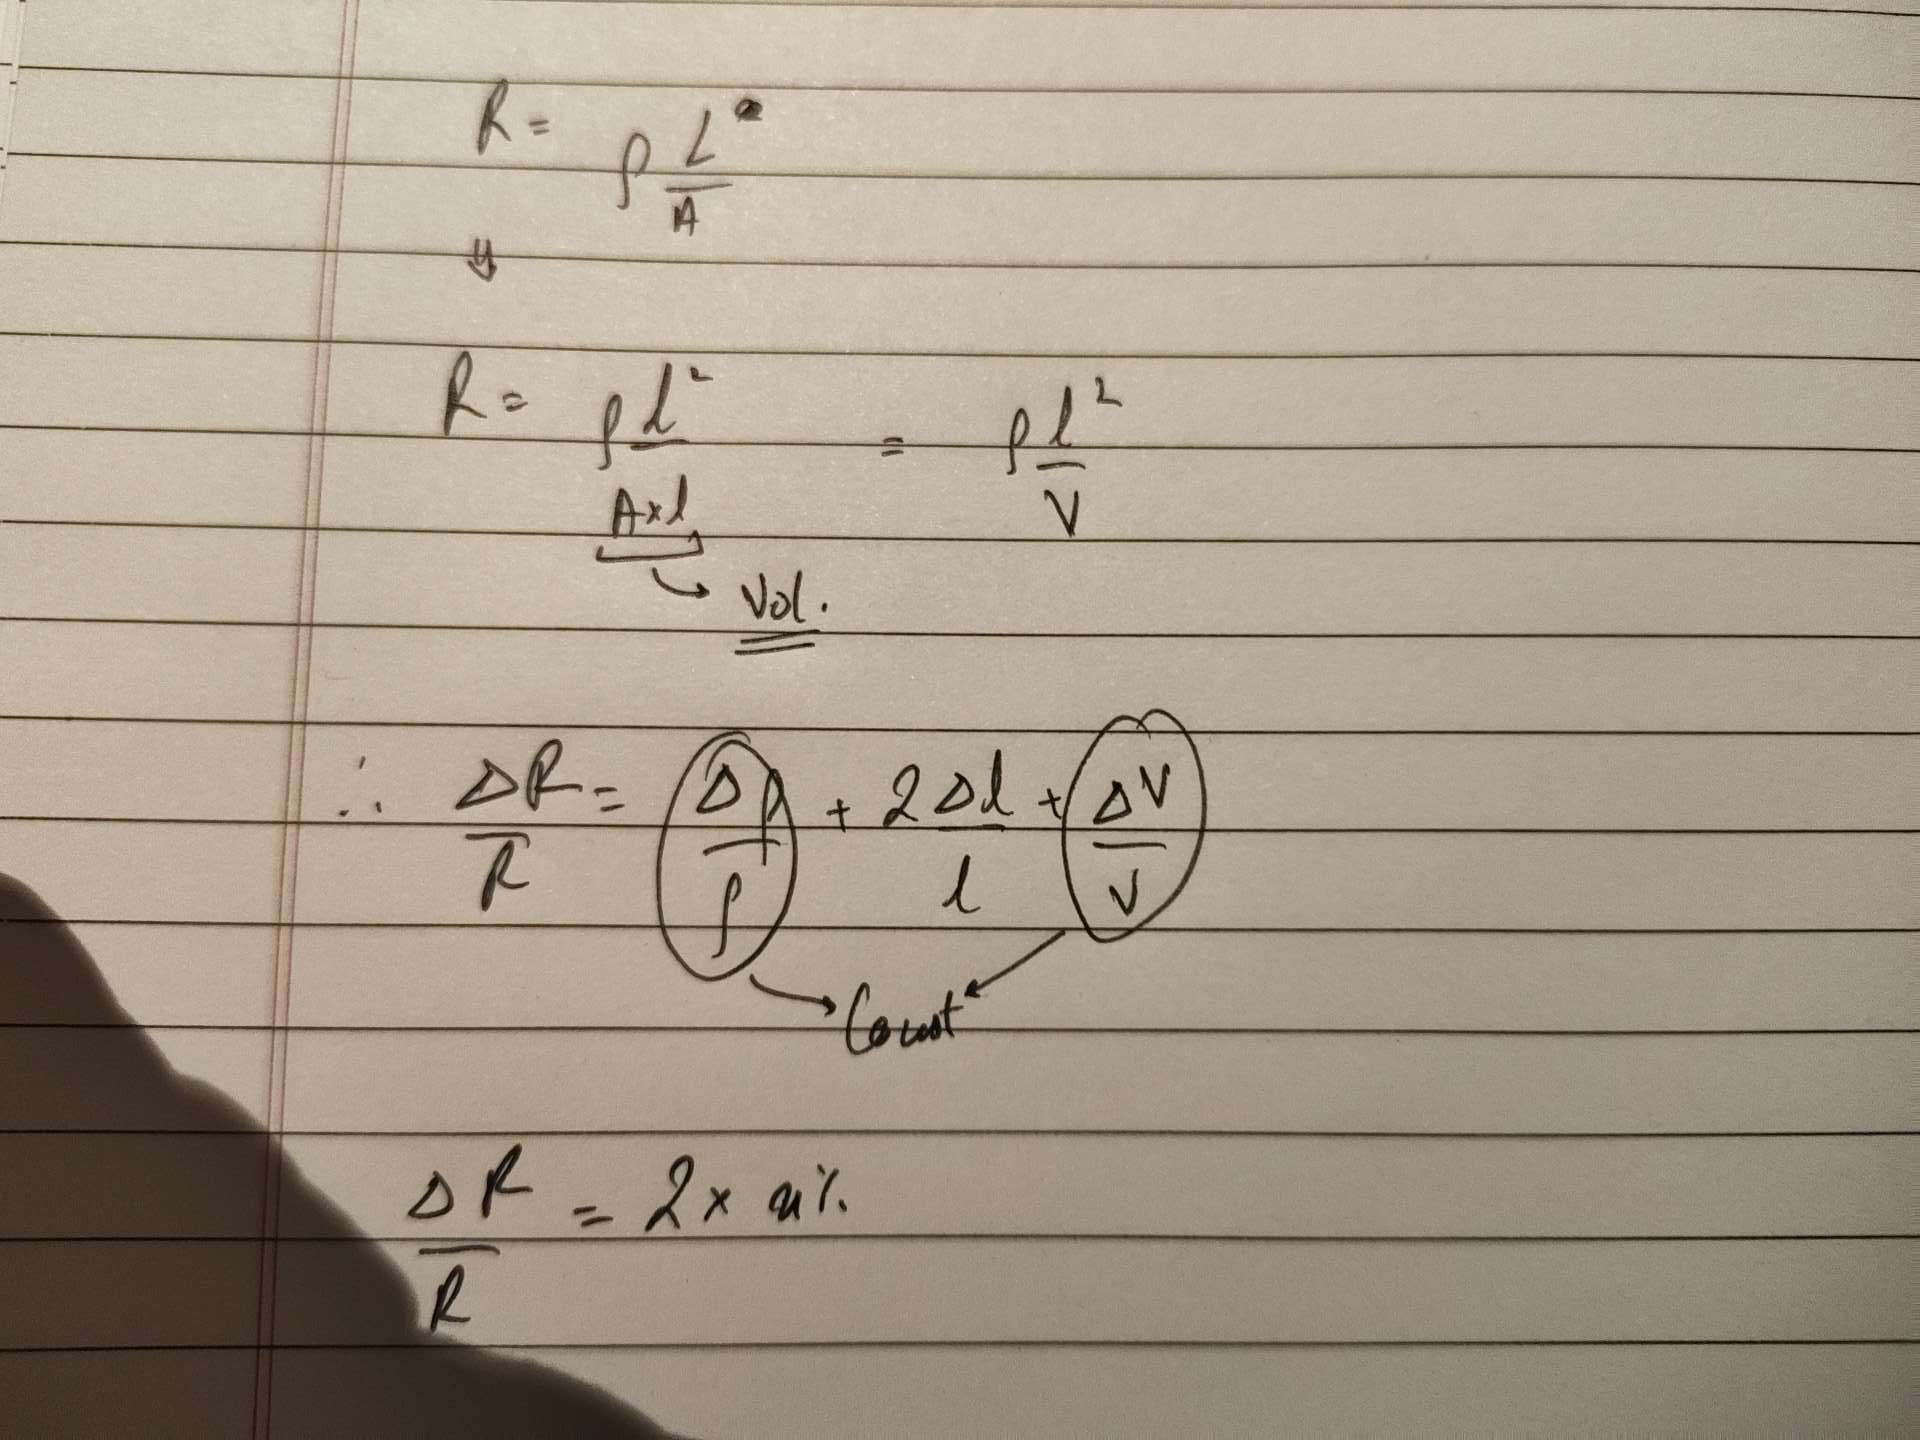 R = ρ L/A
⇓
R = ρ l²/(A×l) = ρ l²/V
→ Vol.
∴ ΔR/R = Δρ/ρ + 2Δl/l + ΔV/V
→ Const ←
ΔR/R = 2 × n%